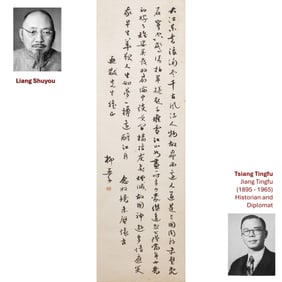 Liang Shuyou
大江東去浪淘盡千古風流人物故壘西邊人道是三國周郎赤壁亂
石穿空驚濤拍岸捲起千堆雪江山如畫一時多少豪傑遙想公瑾當年小喬
初嫁了雄姿英發羽扇綸巾談笑間檣櫓灰飛煙滅故國神遊多情應笑
我早生華髮人生如夢一樽還酹江月 念奴嬌赤壁懷古
先生
Tsiang Tingfu
Jiang Tingfu
(1895 - 1965)
Historian and
Diplomat